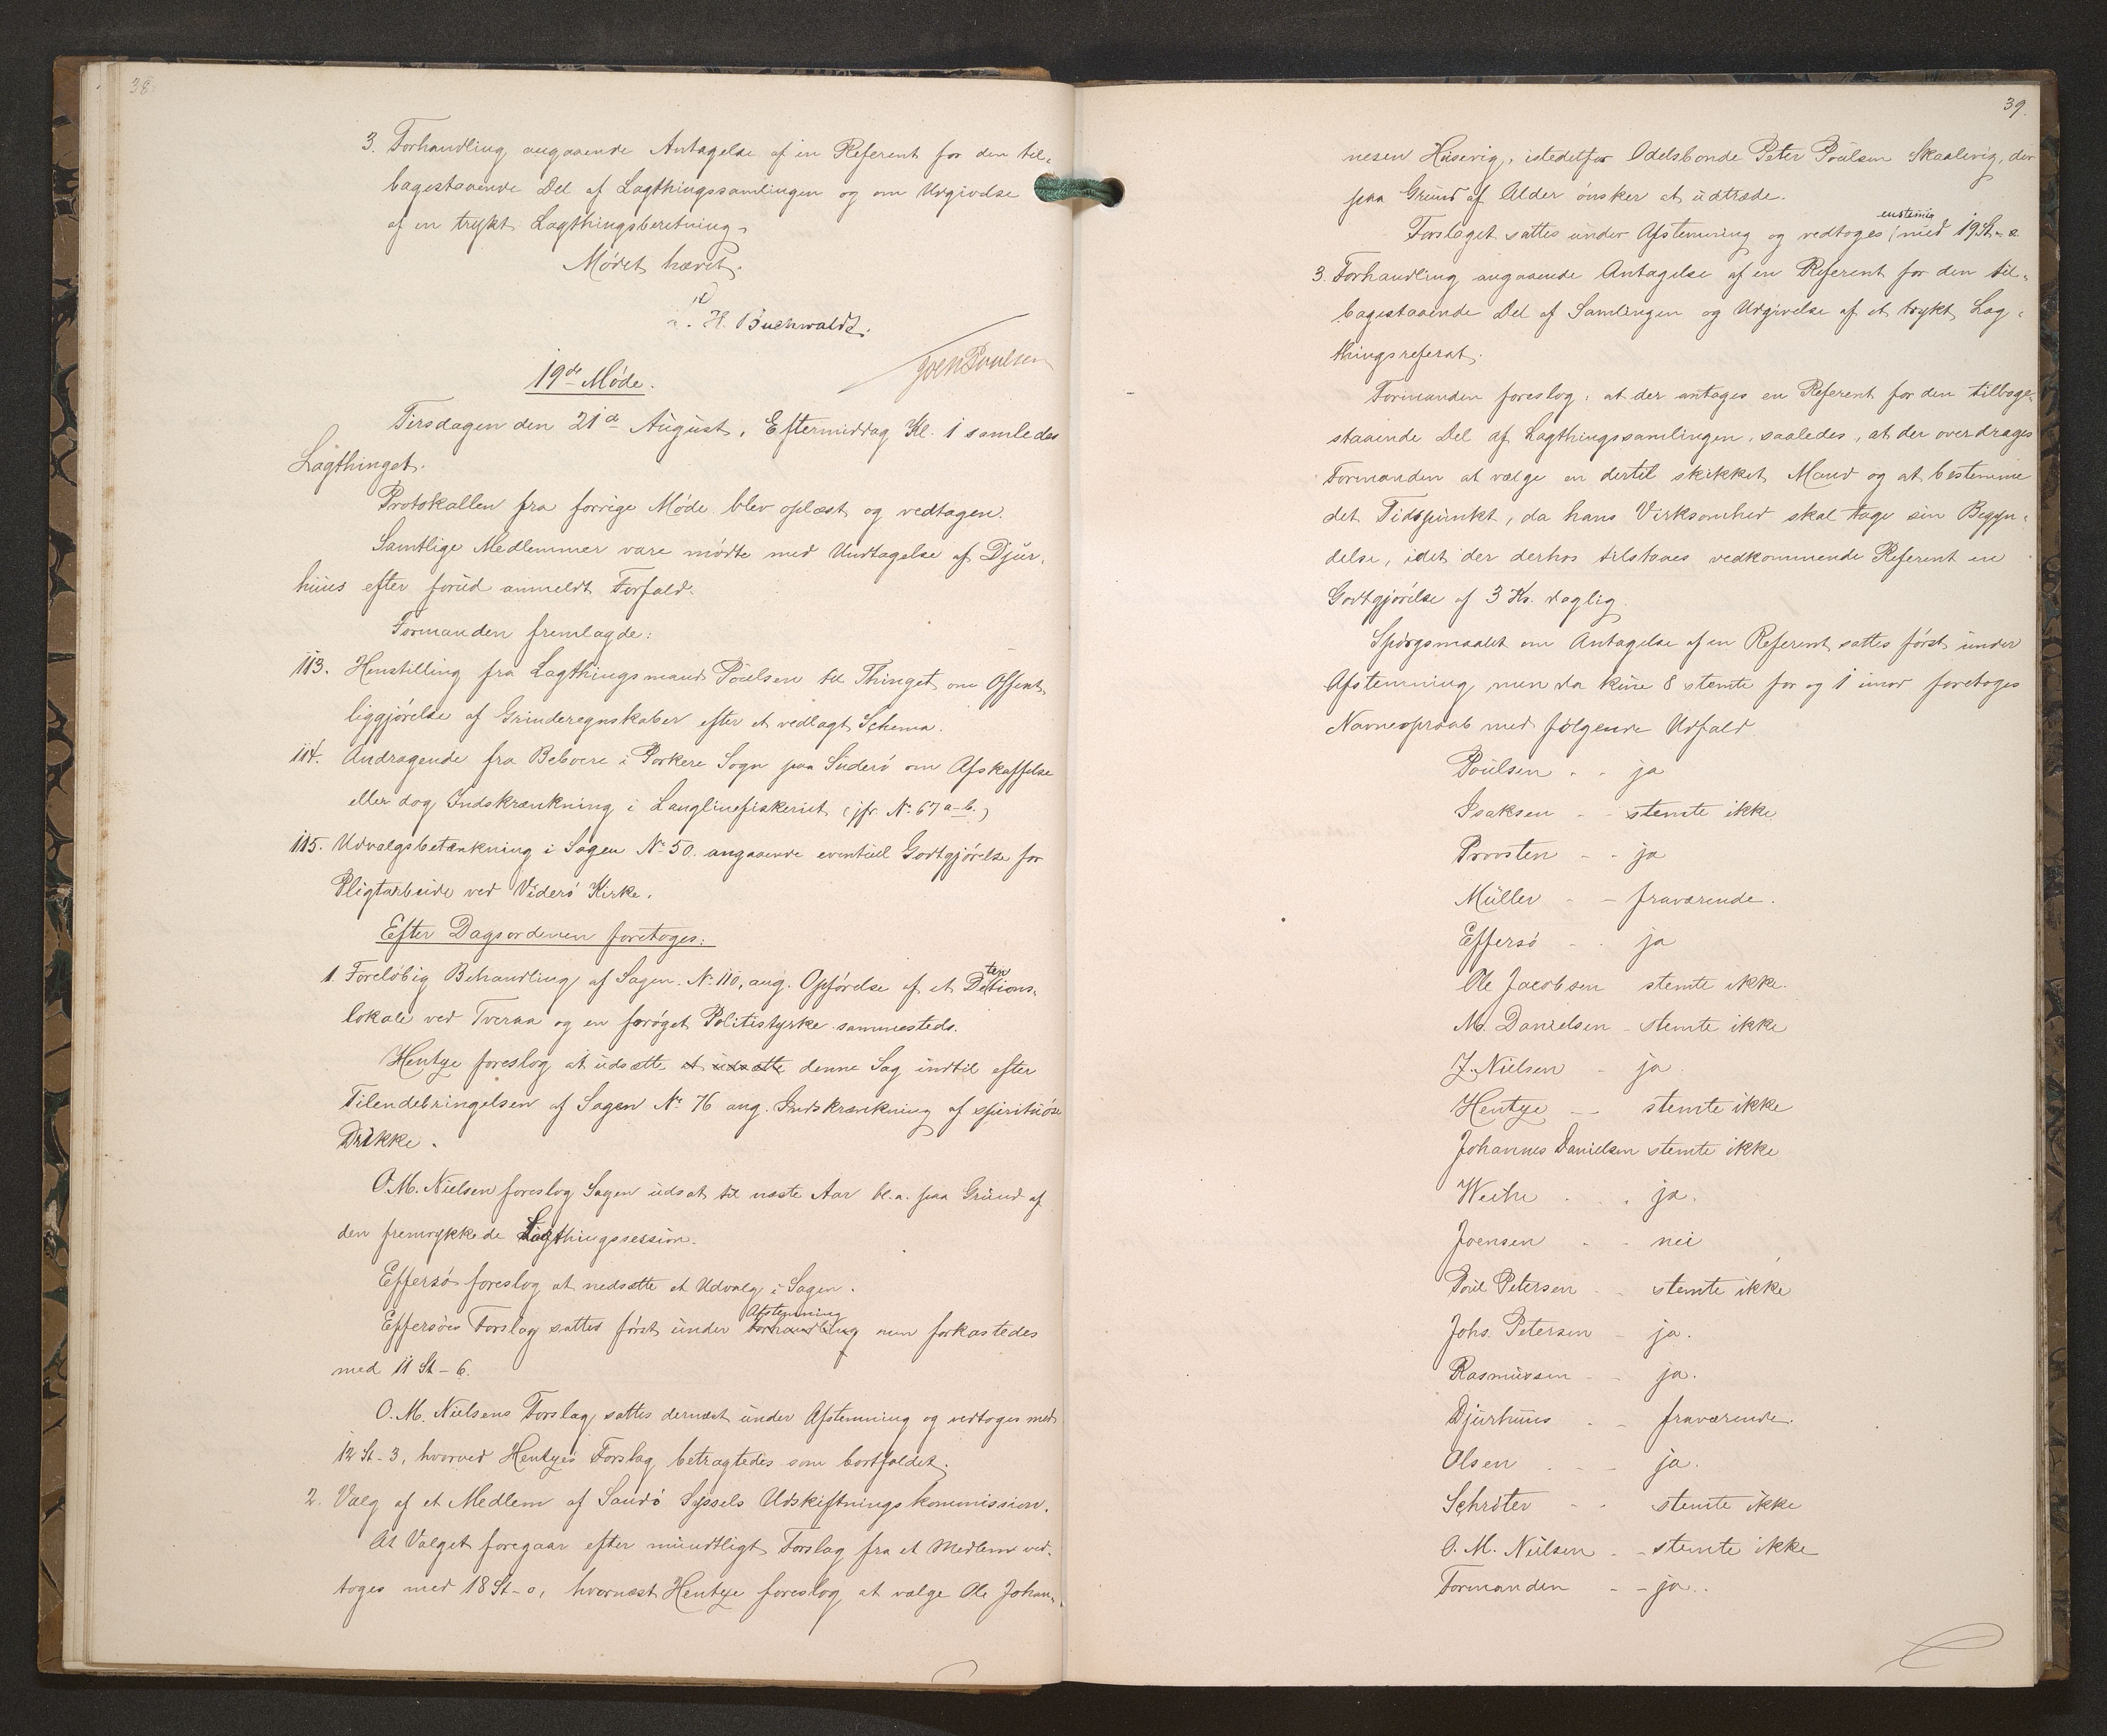 38
3. Forhandling angaaende Antagelse af en Referent for den til-
bagestaaende Del af Lagthingssamlingen og om Udgivelse
af en trykt Lagthingsberetning.
Mødet hævet.
H. Buchwaldt.
Joen Poulsen
19de Møde.
Tirsdagen den 21de August, Eftermiddag Kl. 1 samledes
Lagthinget.
Protokallen fra forrige Møde blev oplæst og vedtagen.
Samtlige Medlemmer vare mødte med Undtagelse af Djur-
huus efter forud anmeldt Forfald.
Formanden fremlagde:
113. Henstilling fra Lagthingsmand Poulsen til Thinget om Offent-
liggjørelse af Grinderegnskaber efter et vedlagt Schema.
114. Andragende fra Beboere i Porkere Sogn paa Suderø om Afskaffelse
eller dog Indskrænkning i Langlinefiskeriet (jfr. No 67 a-b.)
115. Udvalgsbetænkning i Sagen No 50. angaaende eventuel Godtgjørelse for
Pligtarbeide ved Viderø Kirke.
Efter Dagsordenen foretoges:
1. Foreløbig Behandling af Sagen No 110, ang. Opførelse af et Detentions-
lokale ved Tveraa og en forøget Politistyrke sammesteds.
Hentze foreslog at udsætte at udsætte denne Sag indtil efter
Tilendebringelsen af Sagen No 76 ang. Indskrænkning af spirituøse
Drikke.
O. M. Nielsen foreslog Sagen udsat til næste Aar bl.a. paa Grund af
den fremrykkede Lagthingssession.
Effersø foreslog at nedsætte et Udvalg i Sagen.
Effersøes Forslag sattes først under Forhandling Afstemning men forkastedes
med 11 St - 6.
O. M. Nielsens Forslag sattes dernæst under Afstemning og vedtoges med
12 St - 3, hvorved Hentzes Forslag betragtedes som bortfaldet.
2. Valg af et Medlem af Sandø Syssels Udskiftningskommission.
At Valget foregaar efter mundtligt Forslag fra et Medlem ved-
toges med 18 St - 0, hvornæst Hentze foreslog at vælge Ole Johan-
39.
nesen Husevig, istedetfor Odelsbonde Peter Poulsen Skaalevig, der
paa Grund af Alder ønsker at udtræde.
Forslaget sattes under Afstemning og vedtoges enstemig med 19 St - 0
3. Forhandling angaaende Antagelse af en Referent for den til-
bagestaaende Del af Samlingen og Udgivelse af et trykt Lag-
thingsreferat.
Formanden foreslog: at der antages en Referent for den tilbage-
staaende Del af Lagthingssamlingen, saaledes, at der overdrages
Formanden at vælge en dertil skikket Mand og at bestemme
det Tidspunkt, da hans Virksomhed skal tage sin Begyn-
delse, idet der derhos tilstaaes vedkommende Referent en
Godtgjørelse af 3 Kr. daglig.
Spørgsmaalet om Antagelse af en Referent sattes først under
Afstemning, men da kun 8 stemte for og 1 imod foretoges
Navneopraab med følgende Udfald
Poulsen - - ja
Isaksen - - stemte ikke
Provsten - - ja
Müller - - fraværende.
Effersø - - ja
Ole Jacobsen stemte ikke.
M. Danielsen - stemte ikke
J. Nielsen - ja.
Hentze - - stemte ikke
Johannes Danielsen stemte ikke
Weihe - - ja.
Joensen - - nei
Poul Petersen - stemte ikke
Johs. Petersen - ja.
Rasmussen - - ja.
Djurhuus - - fraværende.
Olsen - - ja.
Schrøter - - stemte ikke
O. M. Nielsen - - stemte ikke
Formanden - - ja.